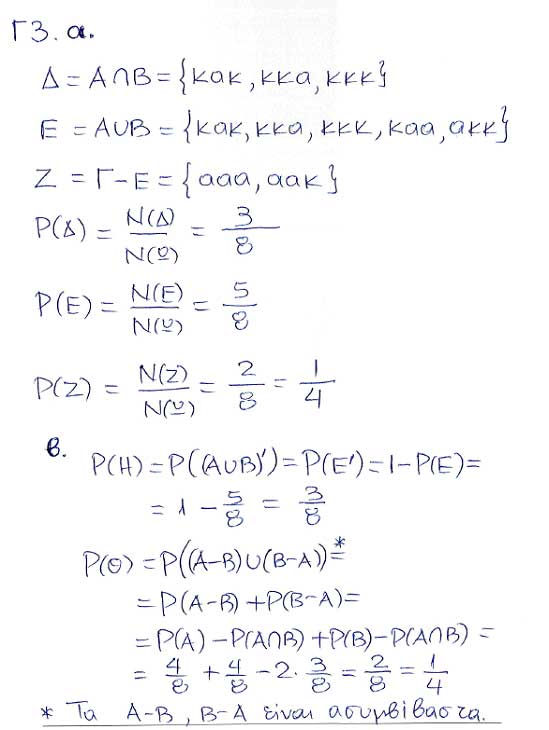 Γ3. α.
Δ = A∩B = {κακ, κκα, κκκ}
E = A∪B = {κακ, κκα, κκκ, καα, ακκ}
Z = Γ-E = {ααα, αακ}
P(Δ) = N(Δ)/N(Ω) = 3/8
P(E) = N(E)/N(Ω) = 5/8
P(Z) = N(Z)/N(Ω) = 2/8 = 1/4
β.
P(H) = P((A∪B)') = P(E') = 1-P(E) =
= 1 - 5/8 = 3/8
P(Θ) = P((A-B)∪(B-A)) =*
= P(A-B) + P(B-A) =
= P(A) - P(A∩B) + P(B) - P(A∩B) =
= 4/8 + 4/8 - 2· 3/8 = 2/8 = 1/4
* Τα A-B, B-A είναι ασυμβίβαστα.